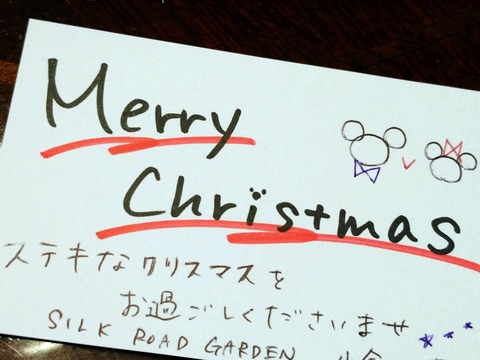 Merry
Christmas
ステキなクリスマスを
お過ごしくださいませ***
SILK ROAD GARDEN